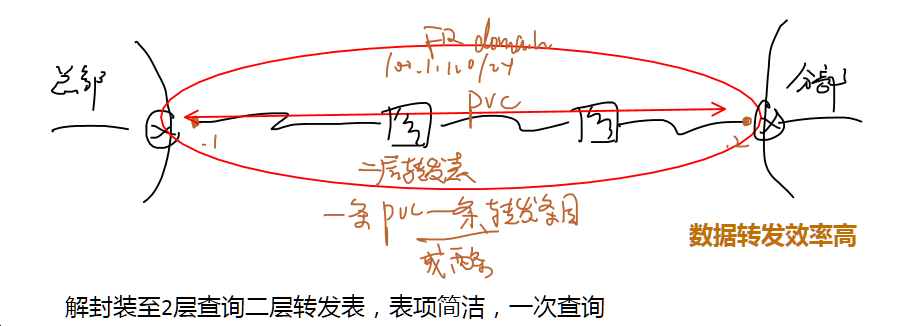 FR domain
100.1.1.0/24
总部
分部
PVC
.1
.2
二层转发表
一条PVC一条转发条目
或两条
数据转发效率高
解封装至2层查询二层转发表，表项简洁，一次查询